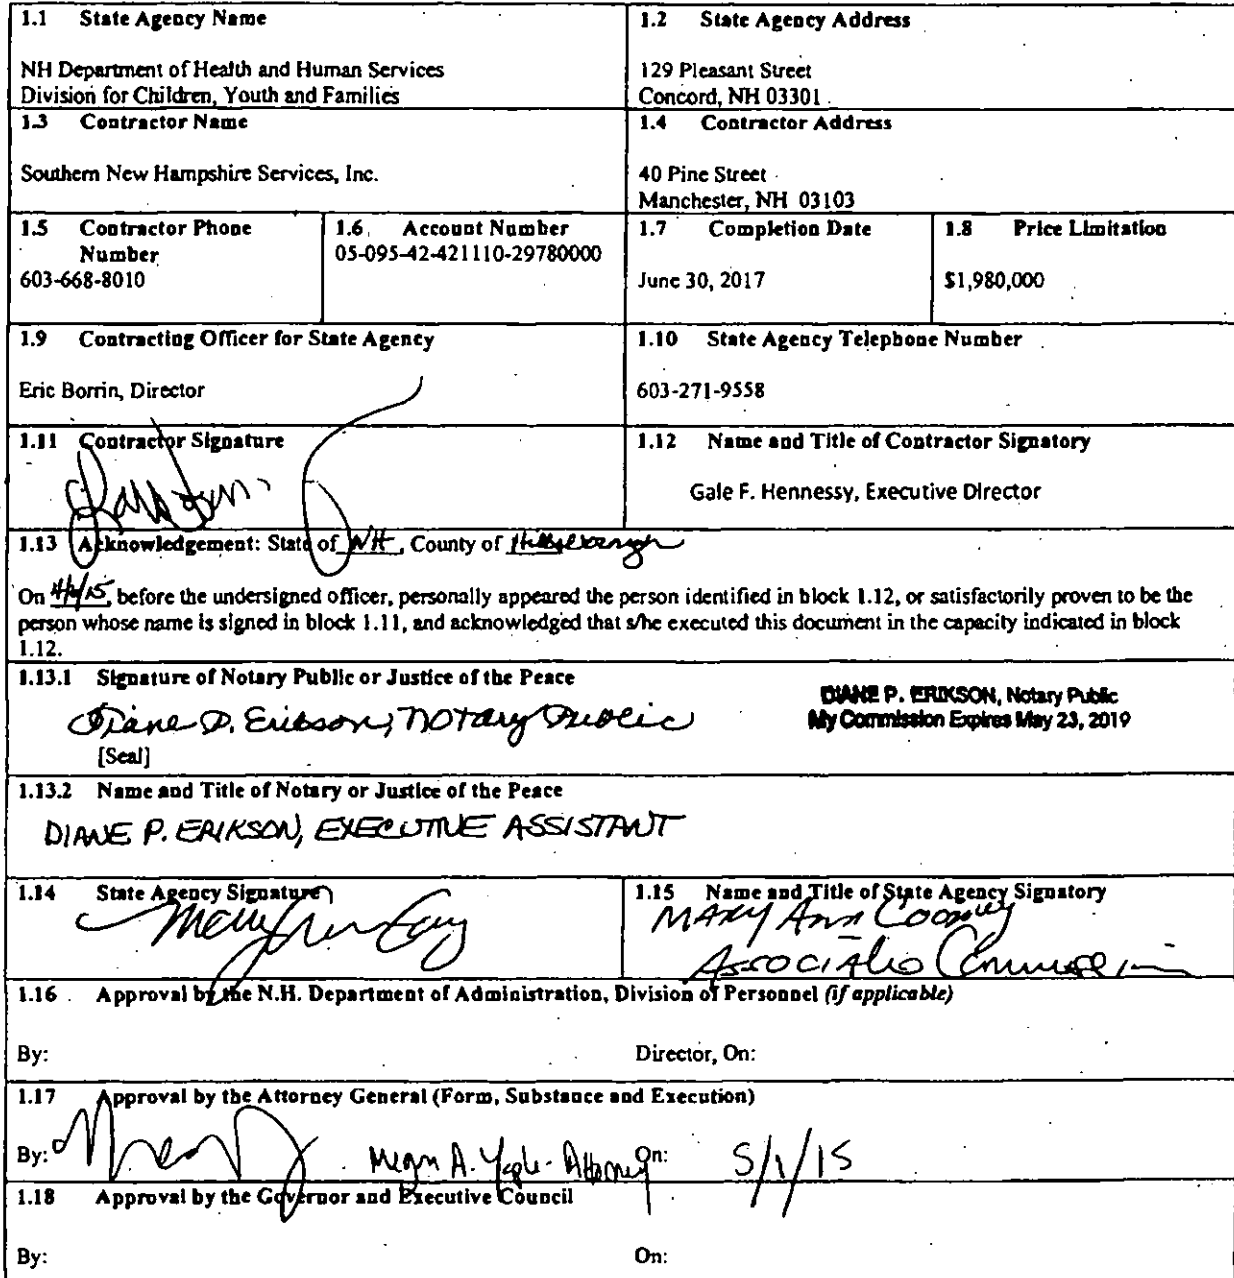 1.1 State Agency Name
NH Department of Health and Human Services
Division for Children, Youth and Families
1.2 State Agency Address
129 Pleasant Street
Concord, NH 03301
1.3 Contractor Name
Southern New Hampshire Services, Inc.
1.4 Contractor Address
40 Pine Street
Manchester, NH 03103
1.5 Contractor Phone
Number
603-668-8010
1.6 Account Number
05-095-42-421110-29780000
1.7 Completion Date
June 30, 2017
1.8 Price Limitation
$1,980,000
1.9 Contracting Officer for State Agency
Eric Borrin, Director
1.10 State Agency Telephone Number
603-271-9558
1.11 Contractor Signature
1.12 Name and Title of Contractor Signatory
Gale F. Hennessy, Executive Director
1.13 Acknowledgement: State of NH, County of Hillsborough
On , before the undersigned officer, personally appeared the person identified in block 1.12, or satisfactorily proven to be the
person whose name is signed in block 1.11, and acknowledged that s/he executed this document in the capacity indicated in block
1.12.
1.13.1 Signature of Notary Public or Justice of the Peace
Diane P. Erikson, Notary Public
DIANE P. ERIKSON, Notary Public
My Commission Expires May 23, 2019
[Seal]
1.13.2 Name and Title of Notary or Justice of the Peace
DIANE P. ERIKSON, EXECUTIVE ASSISTANT
1.14 State Agency Signature
1.15 Name and Title of State Agency Signatory
Mary Ann Cooney
Associate
1.16 Approval by the N.H. Department of Administration, Division of Personnel (if applicable)
By:
Director, On:
1.17 Approval by the Attorney General (Form, Substance and Execution)
By: Megan A. - Attorney On: 5/1/15
1.18 Approval by the Governor and Executive Council
By:
On: